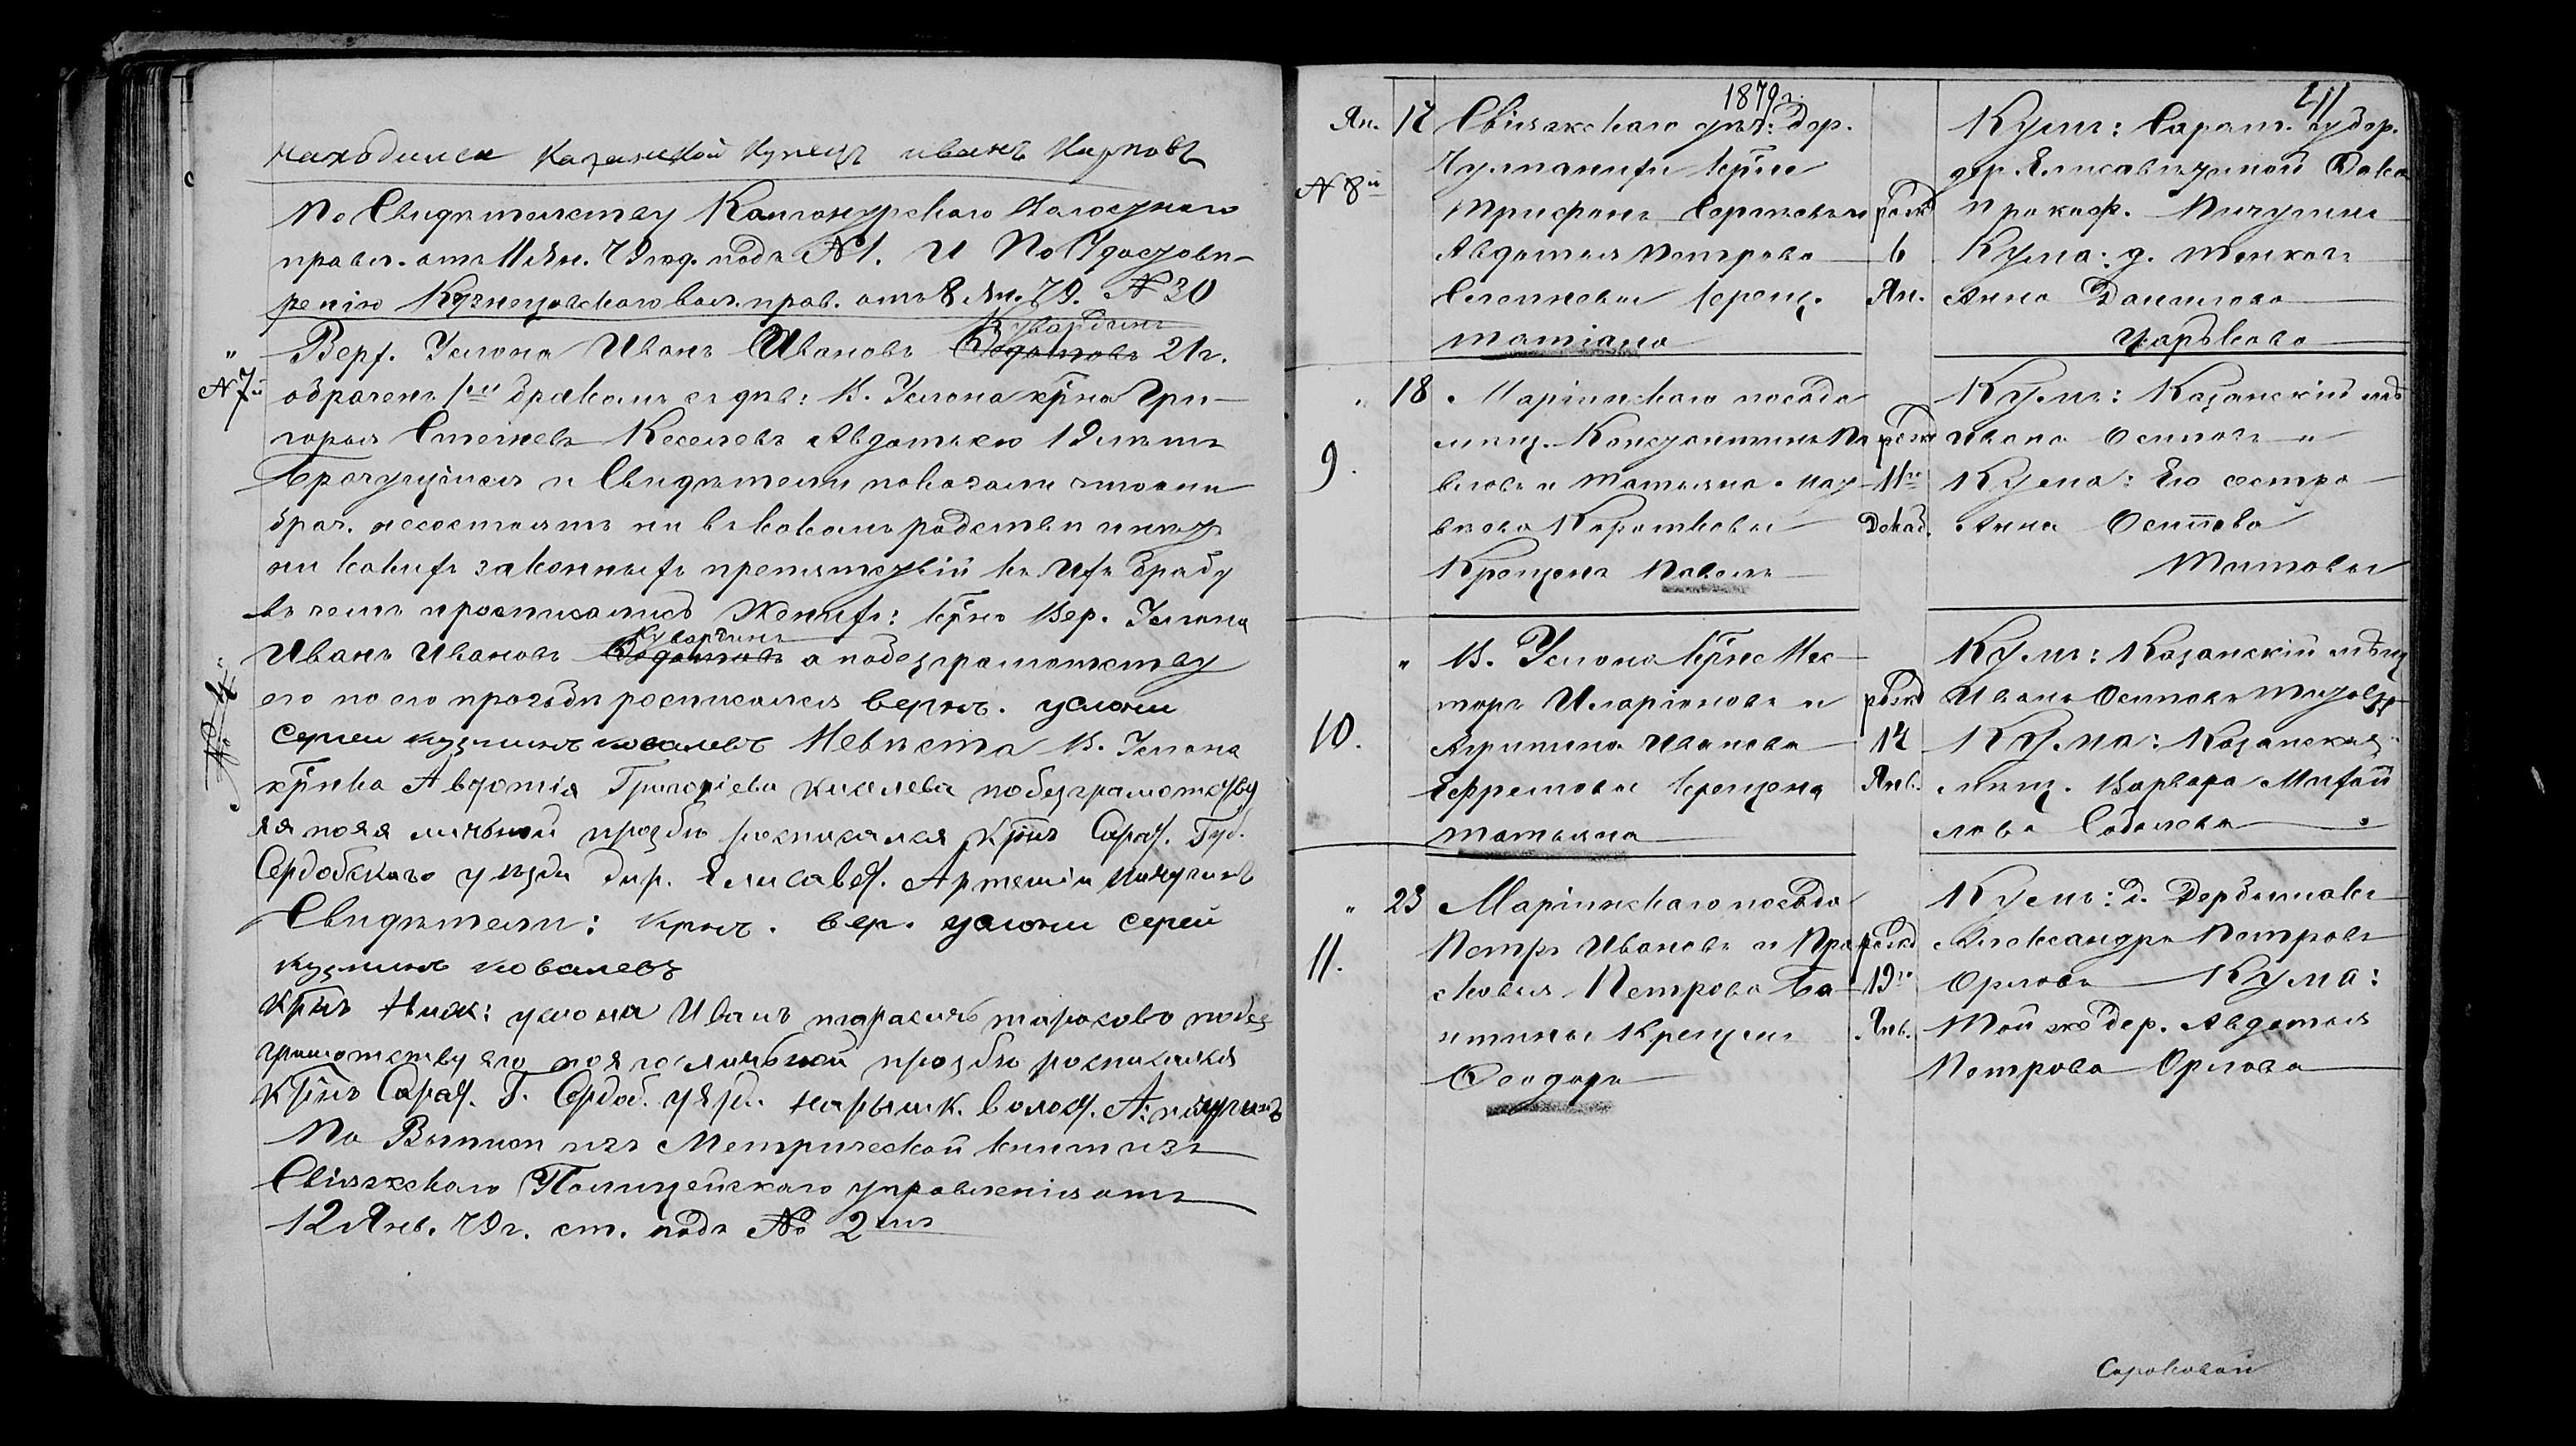 находился Казанской Купецъ иванъ Карповъ
По Свидѣтельству Волостнаго
правл. отъ 11 Ян. 79 год. подъ № 1. И По Удостовѣ-
ренію Кузнецовскаго вол. прав. отъ 8 Ян. 79. № 30
Кувардинъ
" Верх. Услона Иванъ Ивановъ Федотовъ 21 г.
№ 7й
обрачен 1мъ бракомъ съ дѣв: В. Услона кр̃на Гри-
горья Киселевъ Авдотьею 19 лѣтъ
Брачущіися и Свидѣтели показали что они
брач. несостоятъ ни въ какомъ родствѣ и нѣту
ни какихъ законныхъ препятствій къ ихъ браку
въ чемъ и росписались Женихъ: кр̃нъ Вер. Услона
Кувардинъ
Иванъ Ивановъ Федотовъ а по безграмотству
его по его прозьби росписался верхъ. услони
Сергеи кузминъ ковалевъ Невѣста В. Услона
кр̃нка Авдотія Григоріева Киселева по безграмотству
ея по ея личьной прозби росписался Кр̃нъ Сарат. Губ.
Сердобскаго уѣзди дир. Елисавет. Артемии Пичугинъ
Свидѣтели: крнъ. вер. услони серей
кузминъ ковалевъ
Кр̃нъ Ниж: услона Иванъ тарасичь тарасово по без
грамотству его по яго личьной прозби росписался
Кр̃нъ Сарат. Г. Сердоб. уѣзд. Нарышк. Волост. А: пичугинъ
По Выписи изъ Метрической книги изъ
Свіяжскаго Полицейскаго управленія отъ
12 Янв. 79 г. ст. подъ № 2мъ
1879 г.
41
Ян. 17 Свіяжскаго уѣз: дер.
№ 8й
кр̃не
Трифонъ Сергѣевъ и
Авдотья Петрова
крещ.
татіана
рожд
6
Ян.
Кумъ: Сарат. губер.
дер. Елисаветиной Яковъ
Прокоф. Пичугинъ
Кума: д.
Анна Данилова
Царькова
" 18 Маріинскаго посада
9.
мѣщ. Константинъ Па
вловъ и Татьяна Мат
вѣева Короткова
Крещенъ Павелъ
рожд
11го
Декаб.
Кумъ: Казанскій мѣщ
Иванъ Осиповъ и
Кума: Его сестра
Анна Осипова
Титовы
" В. Услона Кр̃не Нес-
10.
торъ Иларіоновъ и
Агрипина Иванова
Ефремовы крещена
татьяна
рожд
12
Янв.
Кумъ: Казанскій мѣщ
Иванъ Осиповъ Титовъ
Кума: Казанская
мѣщ. Варвара Михай
лова Соболева
" 23 Маріинскаго посада
11.
Петръ Ивановъ и Пра
сковья Петрова
Крещенъ
Феодоръ
рожд
19го
Янв.
Кумъ: д. Дербышковъ
Александръ Петровъ
Орловъ Кума:
Той же дер. Авдотья
Петрова Орлова
Сороковой